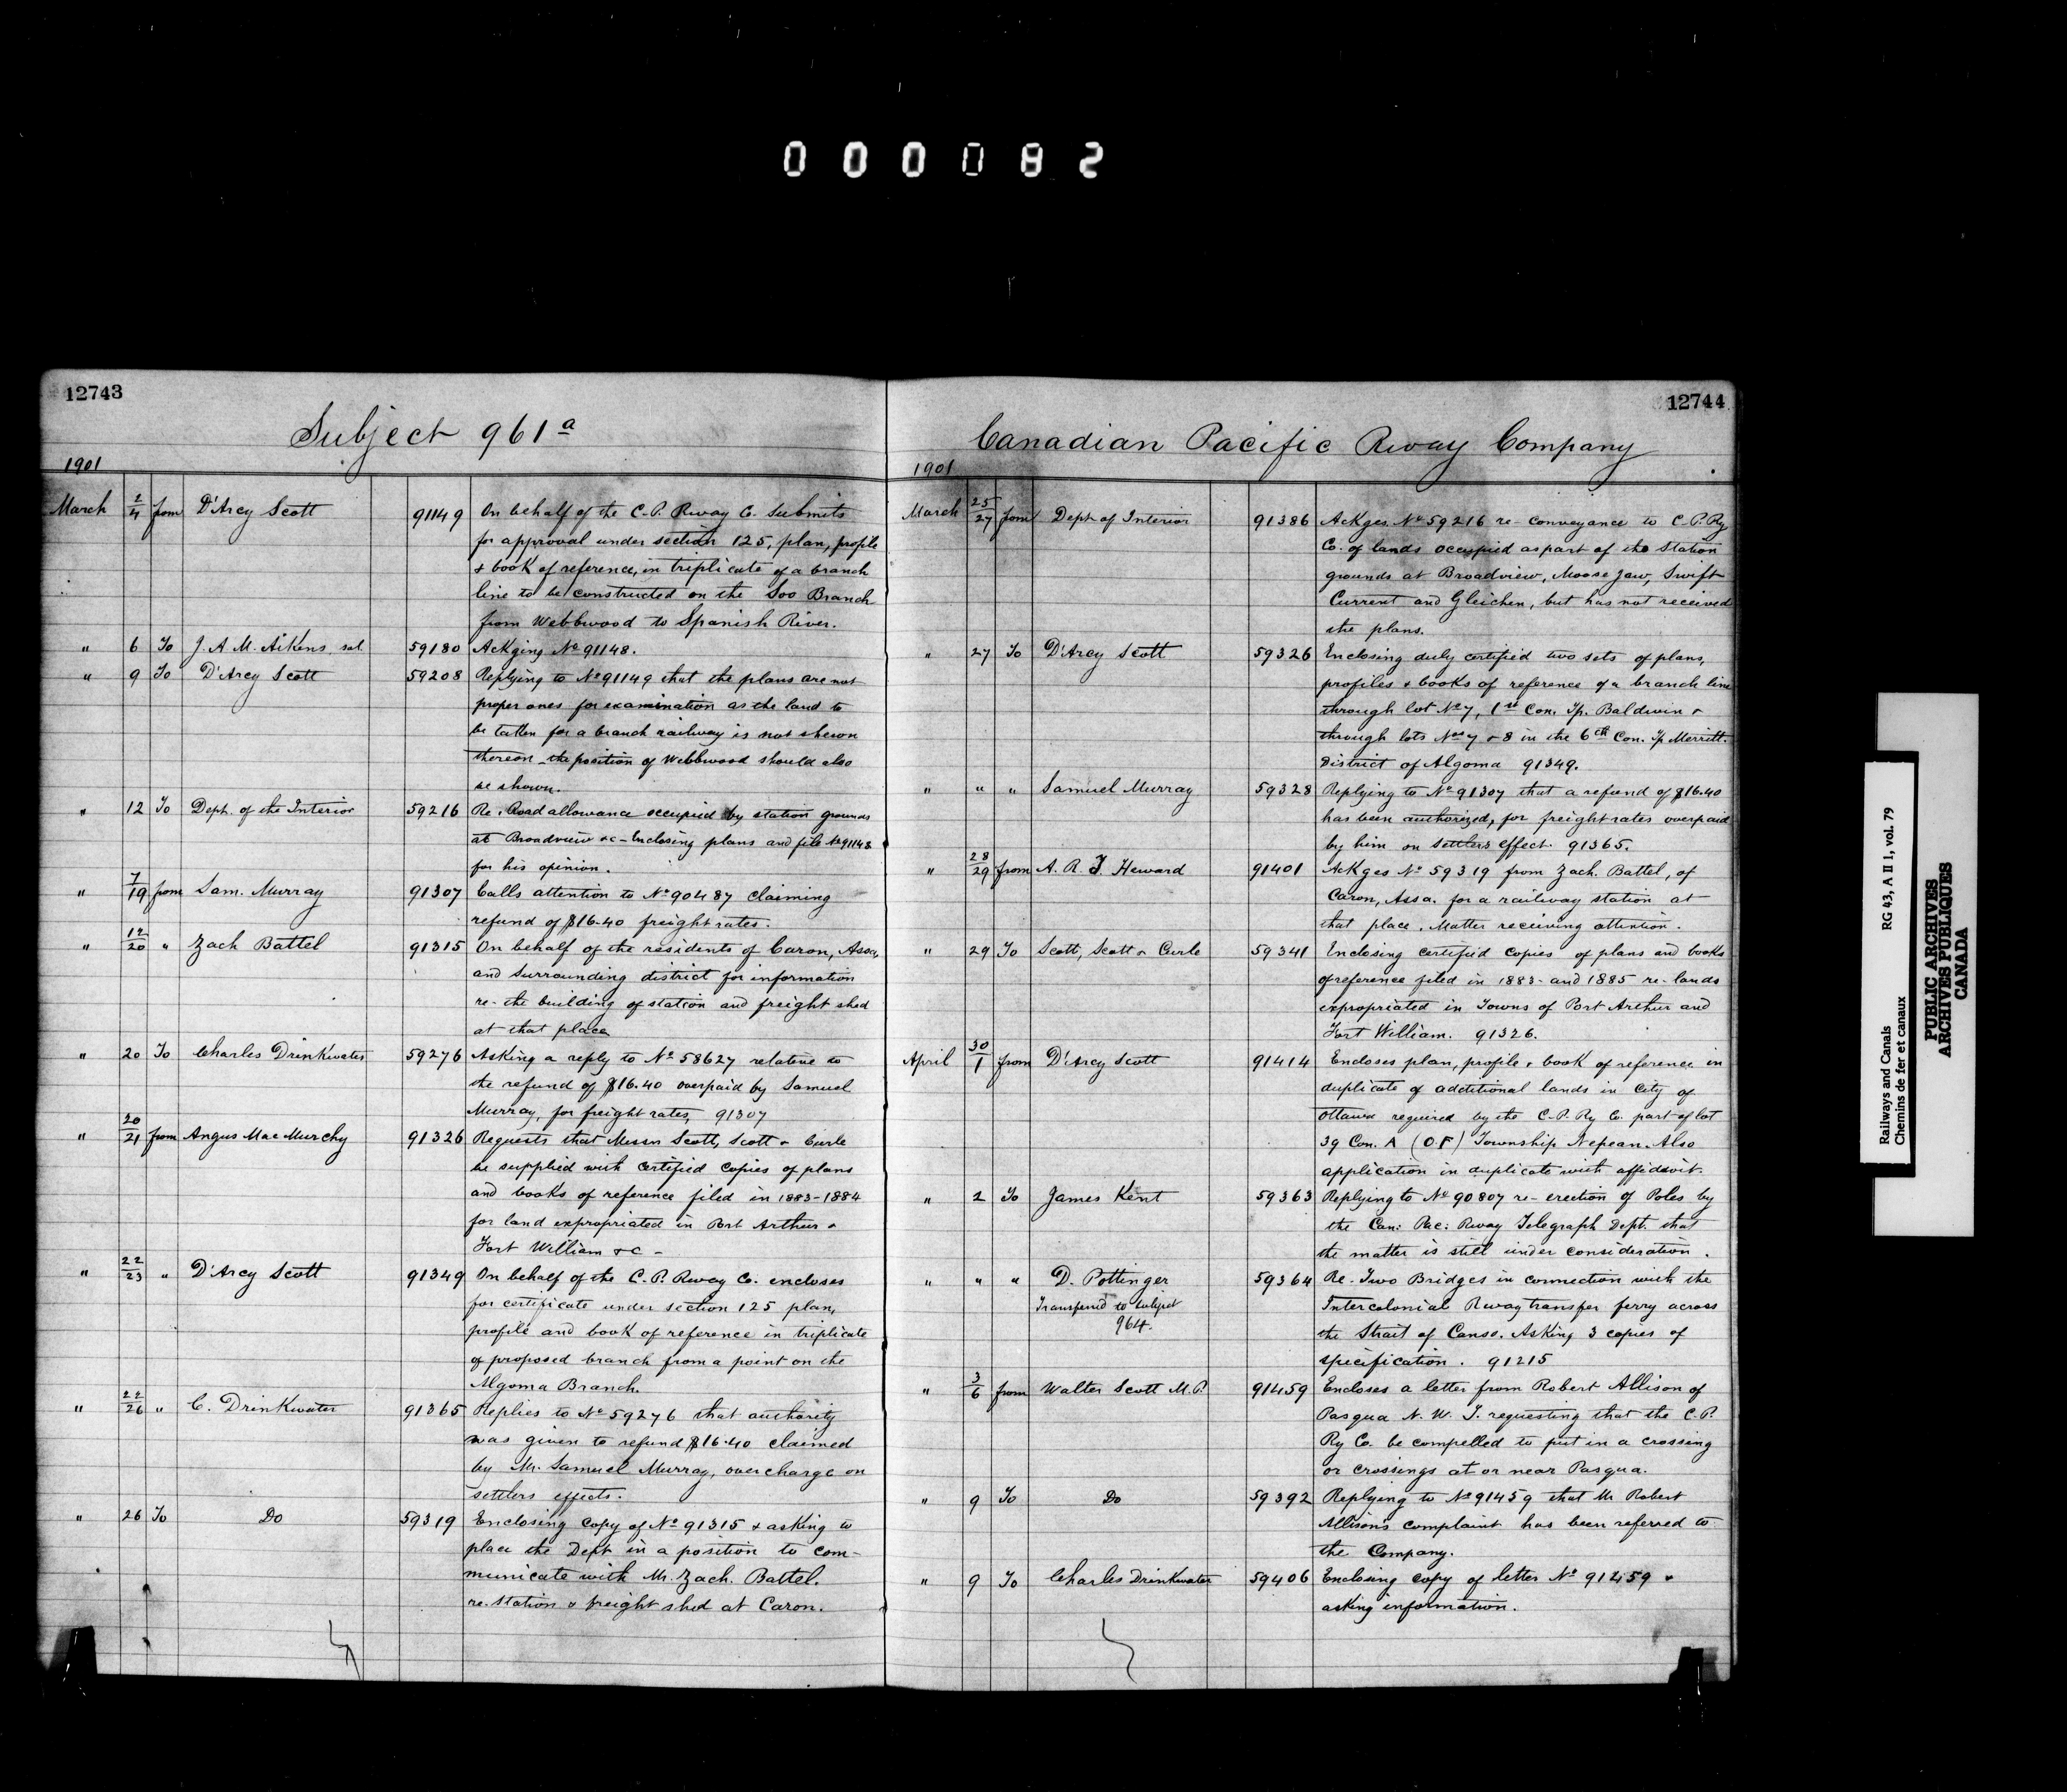 000082
12743
Subject 961a
1901
March 2/4 from D'Arcy Scott 91149 On behalf of the C.P. Rway Co. Submits
for approval under section 125, plan, profile
& book of reference, in triplicate of a branch
line to be constructed on the Soo Branch
from Webbwood to Spanish River.
" 6 To J. A. M. Aikens sol 59180 Ackging No 91148.
" 9 To D'Arcy Scott 59208 Replying to No 91149 that the plans are not
proper ones for examination as the land to
be taken for a branch railway is not shewn
thereon - the position of Webbwood should also
be shown.
" 12 To Dept. of the Interior 59216 Re. Road allowance occupied by station grounds
at Broadview &c - Enclosing plans and file No 91148
for his opinion.
" 7/19 from Sam. Murray 91307 Calls attention to No 90487 claiming
refund of $16.40 freight rates.
" 12/20 " Zach Battel 91315 On behalf of the residents of Caron, Assa,
and surrounding district for information
re - the building of station and freight shed
at that place
" 20 To Charles Drinkwater 59276 Asking a reply to No 58627 relative to
the refund of $16.40 overpaid by Samuel
Murray, for freight rates, 91307
" 20/21 from Angus MacMurchy 91326 Requests that Messrs Scott, Scott & Curle
be supplied with certified copies of plans
and books of reference filed in 1883-1884
for land expropriated in Port Arthur &
Fort William &c -
" 22/23 " D'Arcy Scott 91349 On behalf of the C.P. Rway Co. encloses
for certificate under section 125 plan,
profile and book of reference in triplicate
of proposed branch from a point on the
Algoma Branch.
" 22/26 " C. Drinkwater 91365 Replies to No 59276 that authority
was given to refund $16.40 claimed
by Mr. Samuel Murray, overcharge on
settlers effects.
" 26 To Do 59319 Enclosing copy of No 91315 & asking to
place the Dept in a position to com-
municate with Mr. Zach. Battel.
re. station & freight shed at Caron.
12744
Canadian Pacific Rway Company
1901
March 25/27 from Dept of Interior 91386 Ackges No 59216 re - conveyance to C.P. Ry
Co. of lands occupied as part of the station
grounds at Broadview, Moose Jaw, Swift
Current and Gleichen, but has not received
the plans.
" 27 To D'Arcy Scott 59326 Enclosing duly certified two sets of plans,
profiles & books of reference of a branch line
through lot No 7, 1st Con. Tp. Baldwin &
through lots Nos 7 & 8 in the 6th Con. Tp Merritt.
District of Algoma 91349.
" " " Samuel Murray 59328 Replying to No 91307 that a refund of $16.40
has been authorized, for freight rates overpaid
by him on settlers effect. 91365.
" 28/29 from A. R. G. Heward 91401 Ackges No 59319 from Zach. Battel, of
Caron, Assa. for a railway station at
that place. Matter receiving attention.
" 29 To Scott, Scott & Curle 59341 Enclosing certified copies of plans and books
of reference filed in 1883 - and 1885 re - lands
expropriated in Towns of Port Arthur and
Fort William. 91326.
April 30/1 from D'Arcy Scott 91414 Encloses plan, profile & book of reference in
duplicate of additional lands in City of
Ottawa required by the C.P. Ry Co. part of lot
39 Con. A (O F) Township Nepean. Also
application in duplicate with affidavit.
" 2 To James Kent 59363 Replying to No 90807 re - erection of Poles by
the Can: Pac: Rway Telegraph Dept. that
the matter is still under consideration.
" " " D. Pottinger 59364 Re - Two Bridges in connection with the
Transferred to subject Intercolonial Rway transfer ferry across
964. the Strait of Canso. Asking 3 copies of
specification. 91215
" 3/6 from Walter Scott M.P. 91459 Encloses a letter from Robert Allison of
Pasqua N.W.T. requesting that the C.P.
Ry Co. be compelled to put in a crossing
or crossings at or near Pasqua.
" 9 To Do 59392 Replying to No 91459 that Mr Robert
Allison's complaint has been referred to
the Company.
" 9 To Charles Drinkwater 59406 Enclosing copy of letter No 91459 &
asking information.
Railways and Canals RG 43, A II 1, vol. 79
Chemins de fer et canaux
PUBLIC ARCHIVES
ARCHIVES PUBLIQUES
CANADA